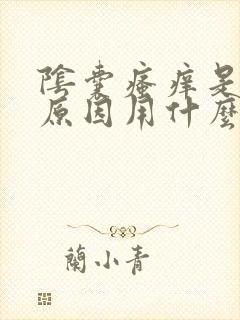 陰囊瘙痒是
原因用什麼
蘭小青